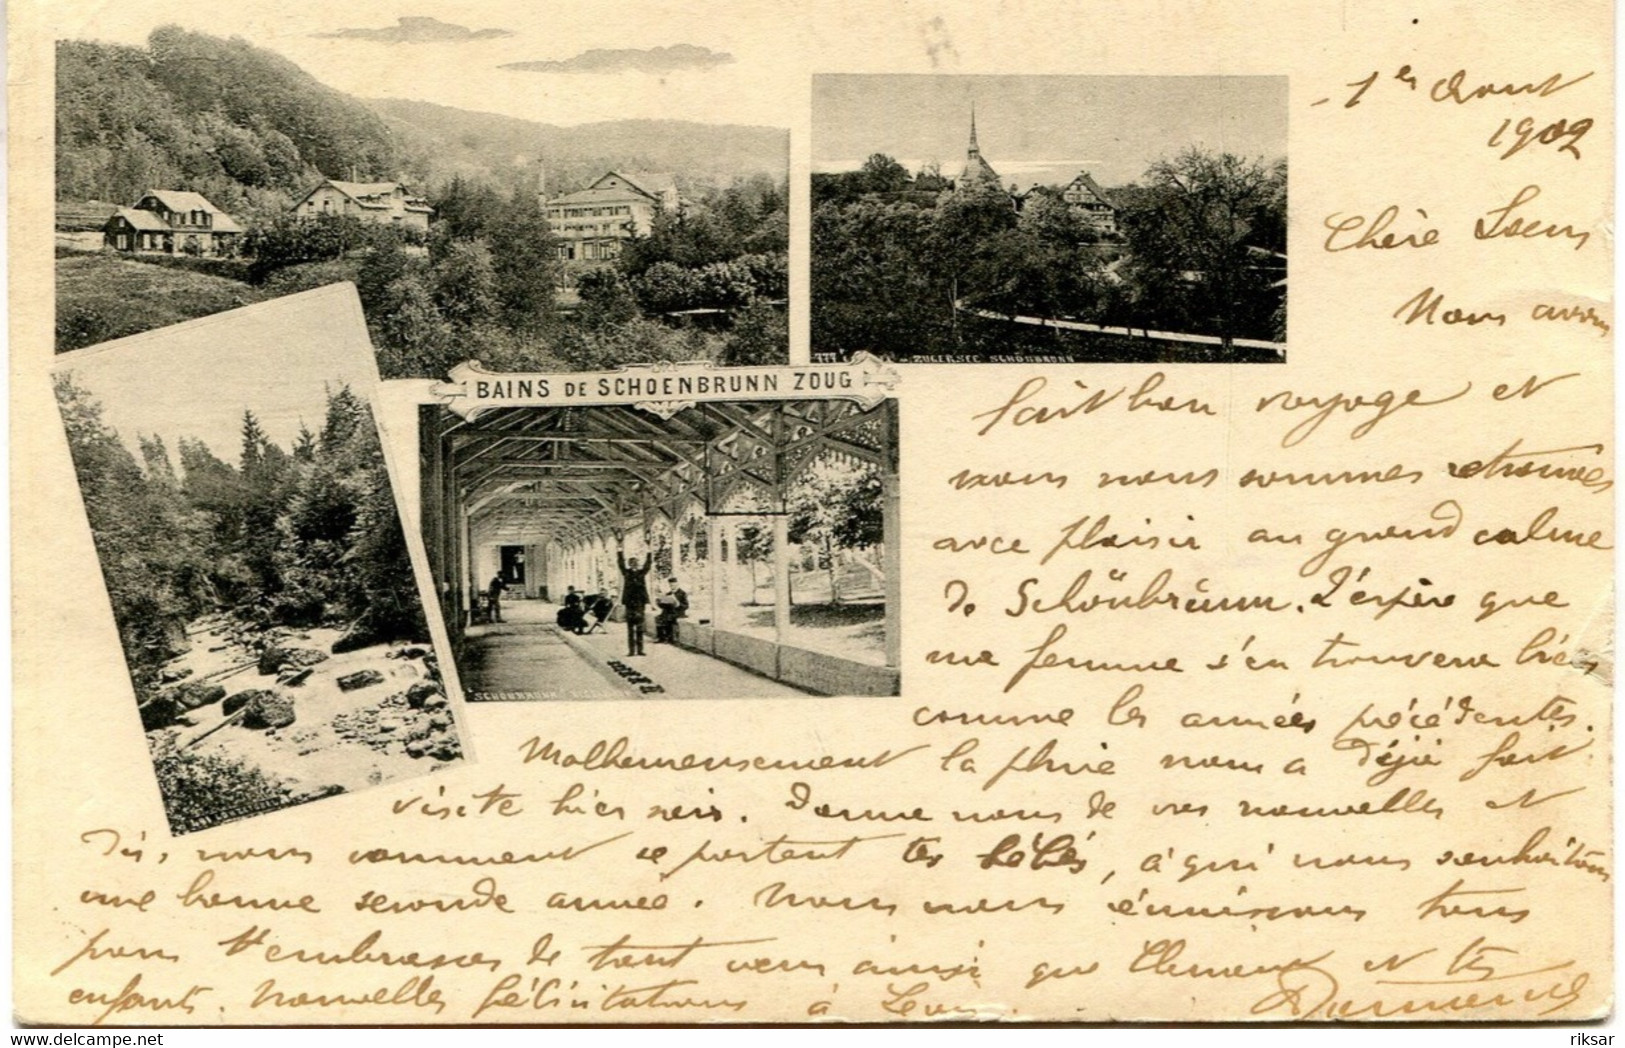 1er Aout
1902
Chère Soeur
BAINS DE SCHOENBRUNN ZOUG
777
ZUGERSEE SCHÖNBRUNN
SCHÖNBRUNN
Nous avons
fait bon voyage et
nous nous sommes retrouvés
avec plaisir au grand calme
de Schönbrünn. J'espère que
ma femme s'en trouvera bien
comme les années précédentes.
Malheureusement la pluie nous a déjà fait
visite hier soir. Donne nous de vos nouvelles et
dis, nous comment se portent tes bébés, à qui nous souhaitons
une bonne seconde année. Nous nous réunissons tous
pour t'embrasser de tout coeur ainsi que Clément et tes
enfants. Nouvelles félicitations à Léon.
riksar